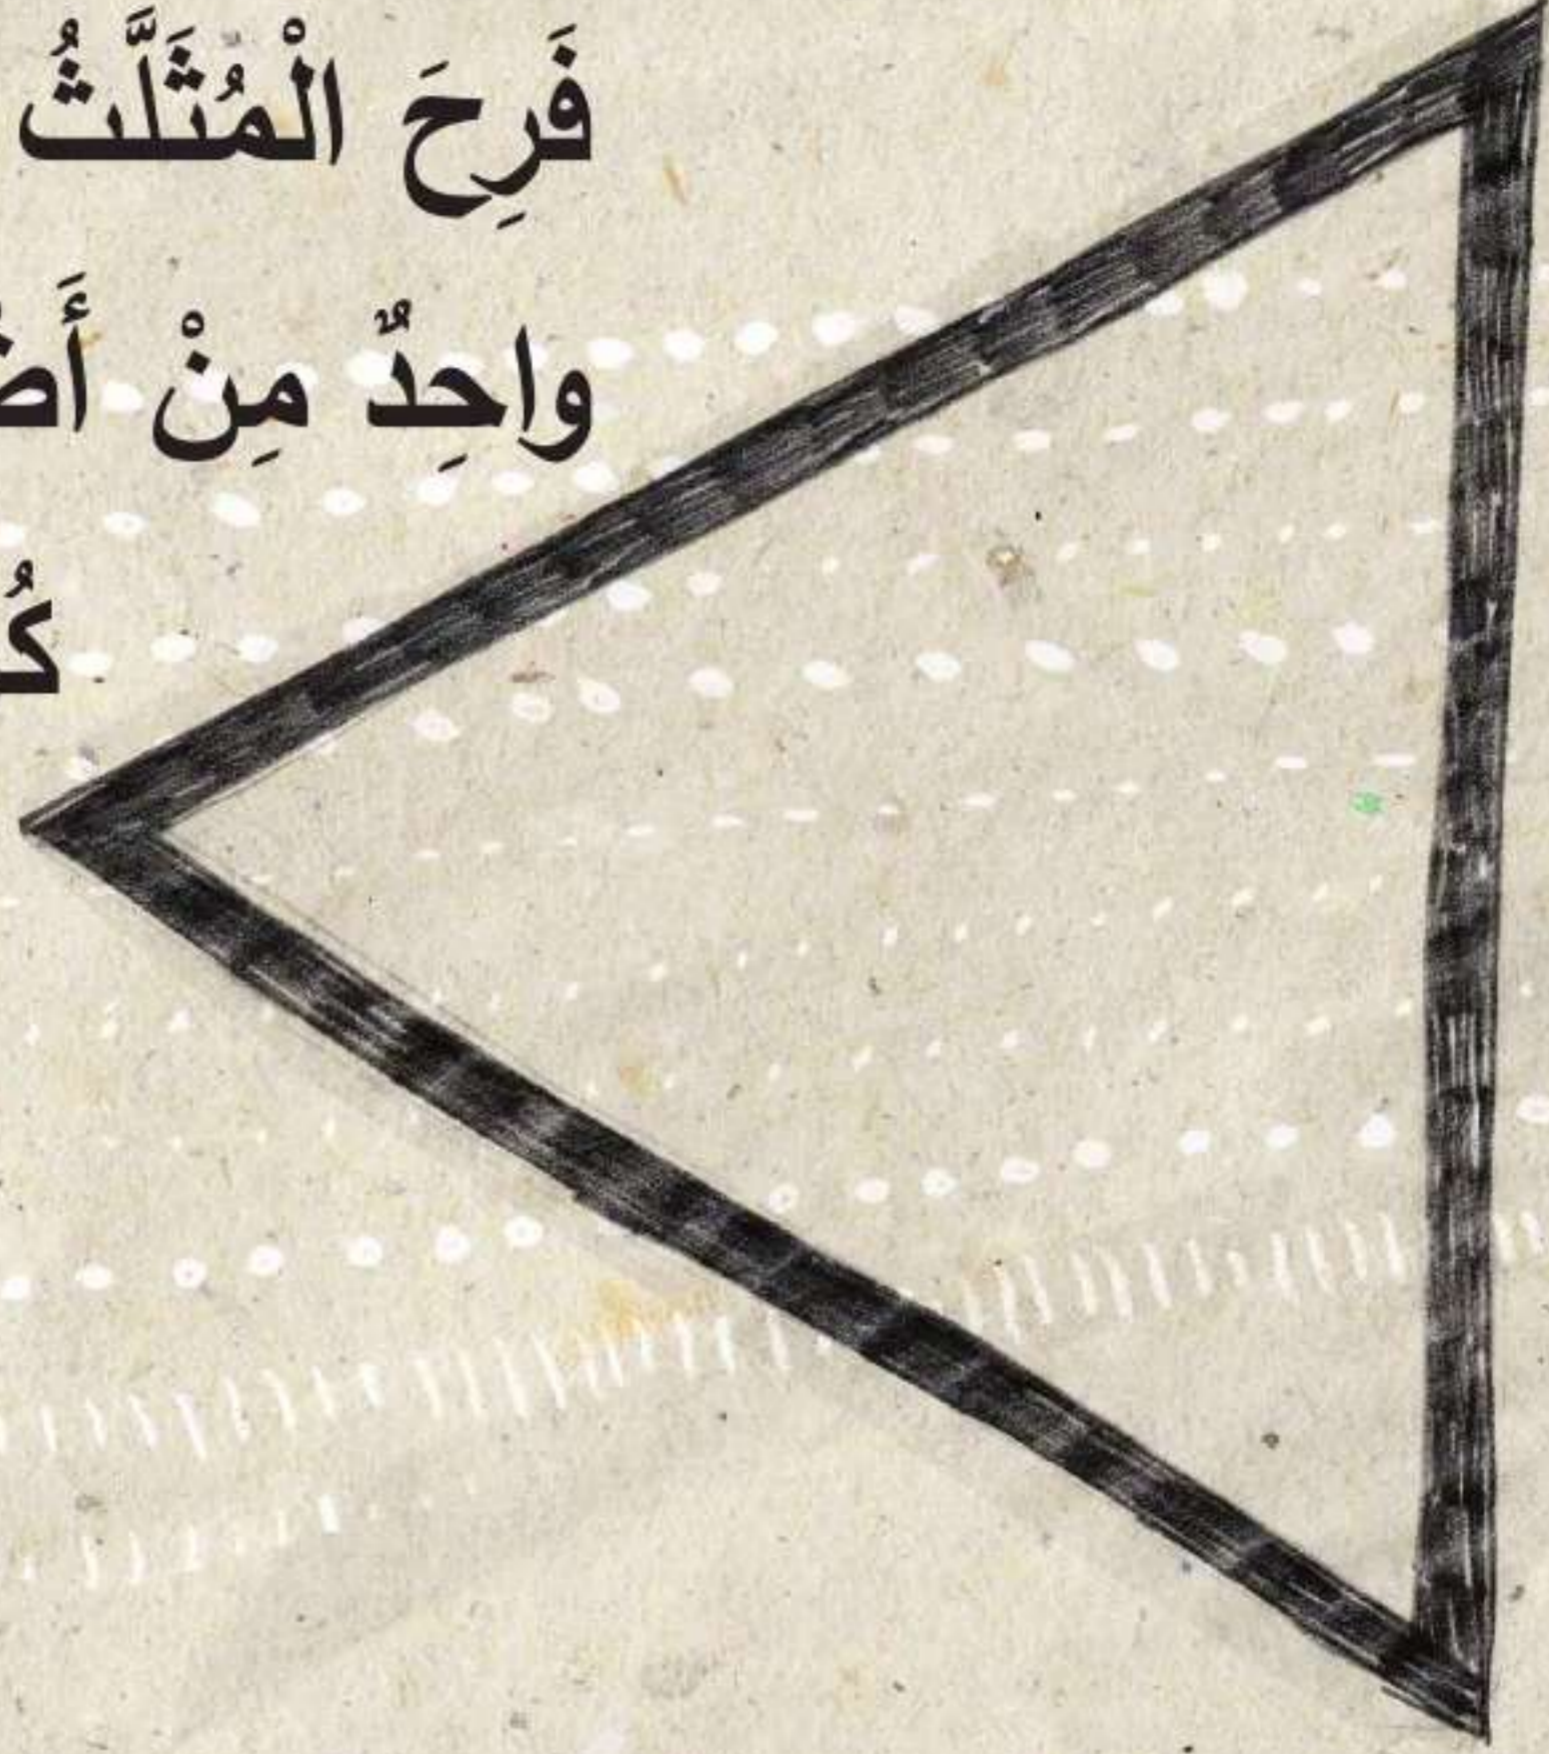 فَرِحَ الْمُثَلَّثُ
واحِدٌ مِنْ